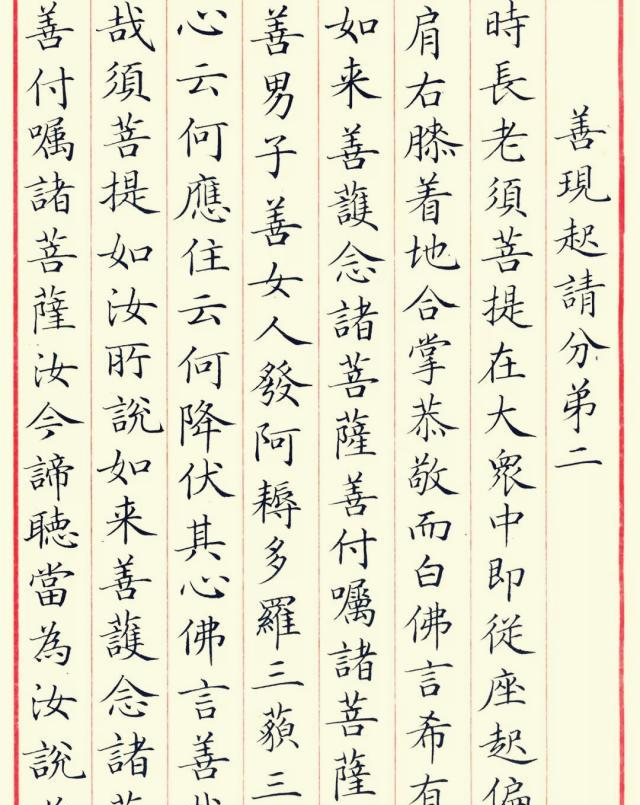 善現起請分弟二
時長老須菩提在大眾中即從座起偏
肩右膝着地合掌恭敬而白佛言希有
如来善護念諸菩薩善付囑諸菩薩
善男子善女人發阿耨多羅三藐三
心云何應住云何降伏其心佛言善
哉須菩提如汝所說如来善護念諸
善付囑諸菩薩汝今諦聽當為汝說